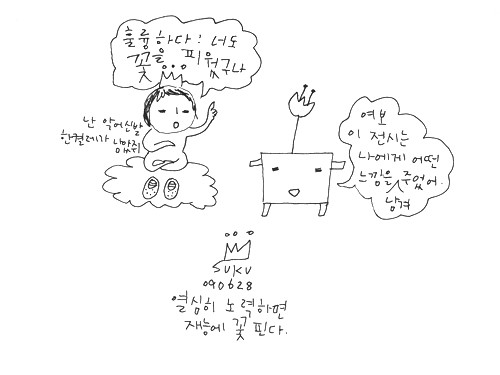 훌륭하다! 너도
꽃을 피웠구나
난 악어신발
한켤레가 남았줘
여보
이 전시는
나에게 어떤
느낌을 주었어.
남겨
SUKU
090628
열심히 노력하면
재능에 꽃 핀다.